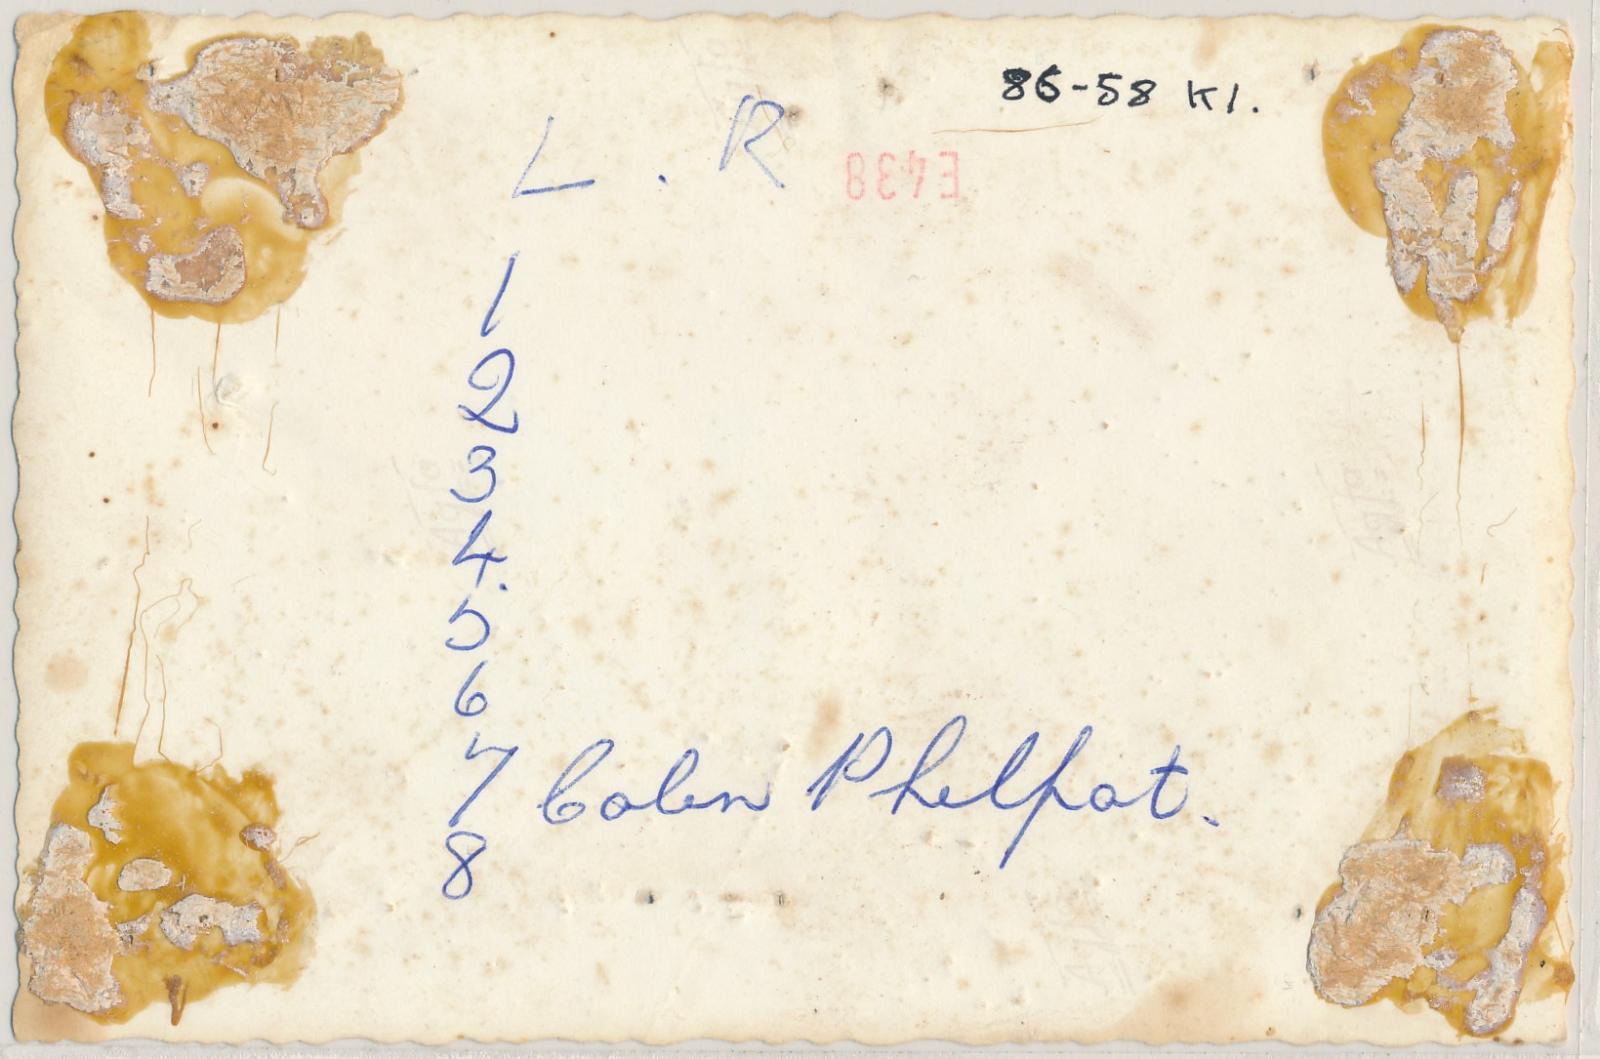 86-58 K1.
L . R
E438
1
2
3
4.
5
6
7 Colen Phelpot.
8